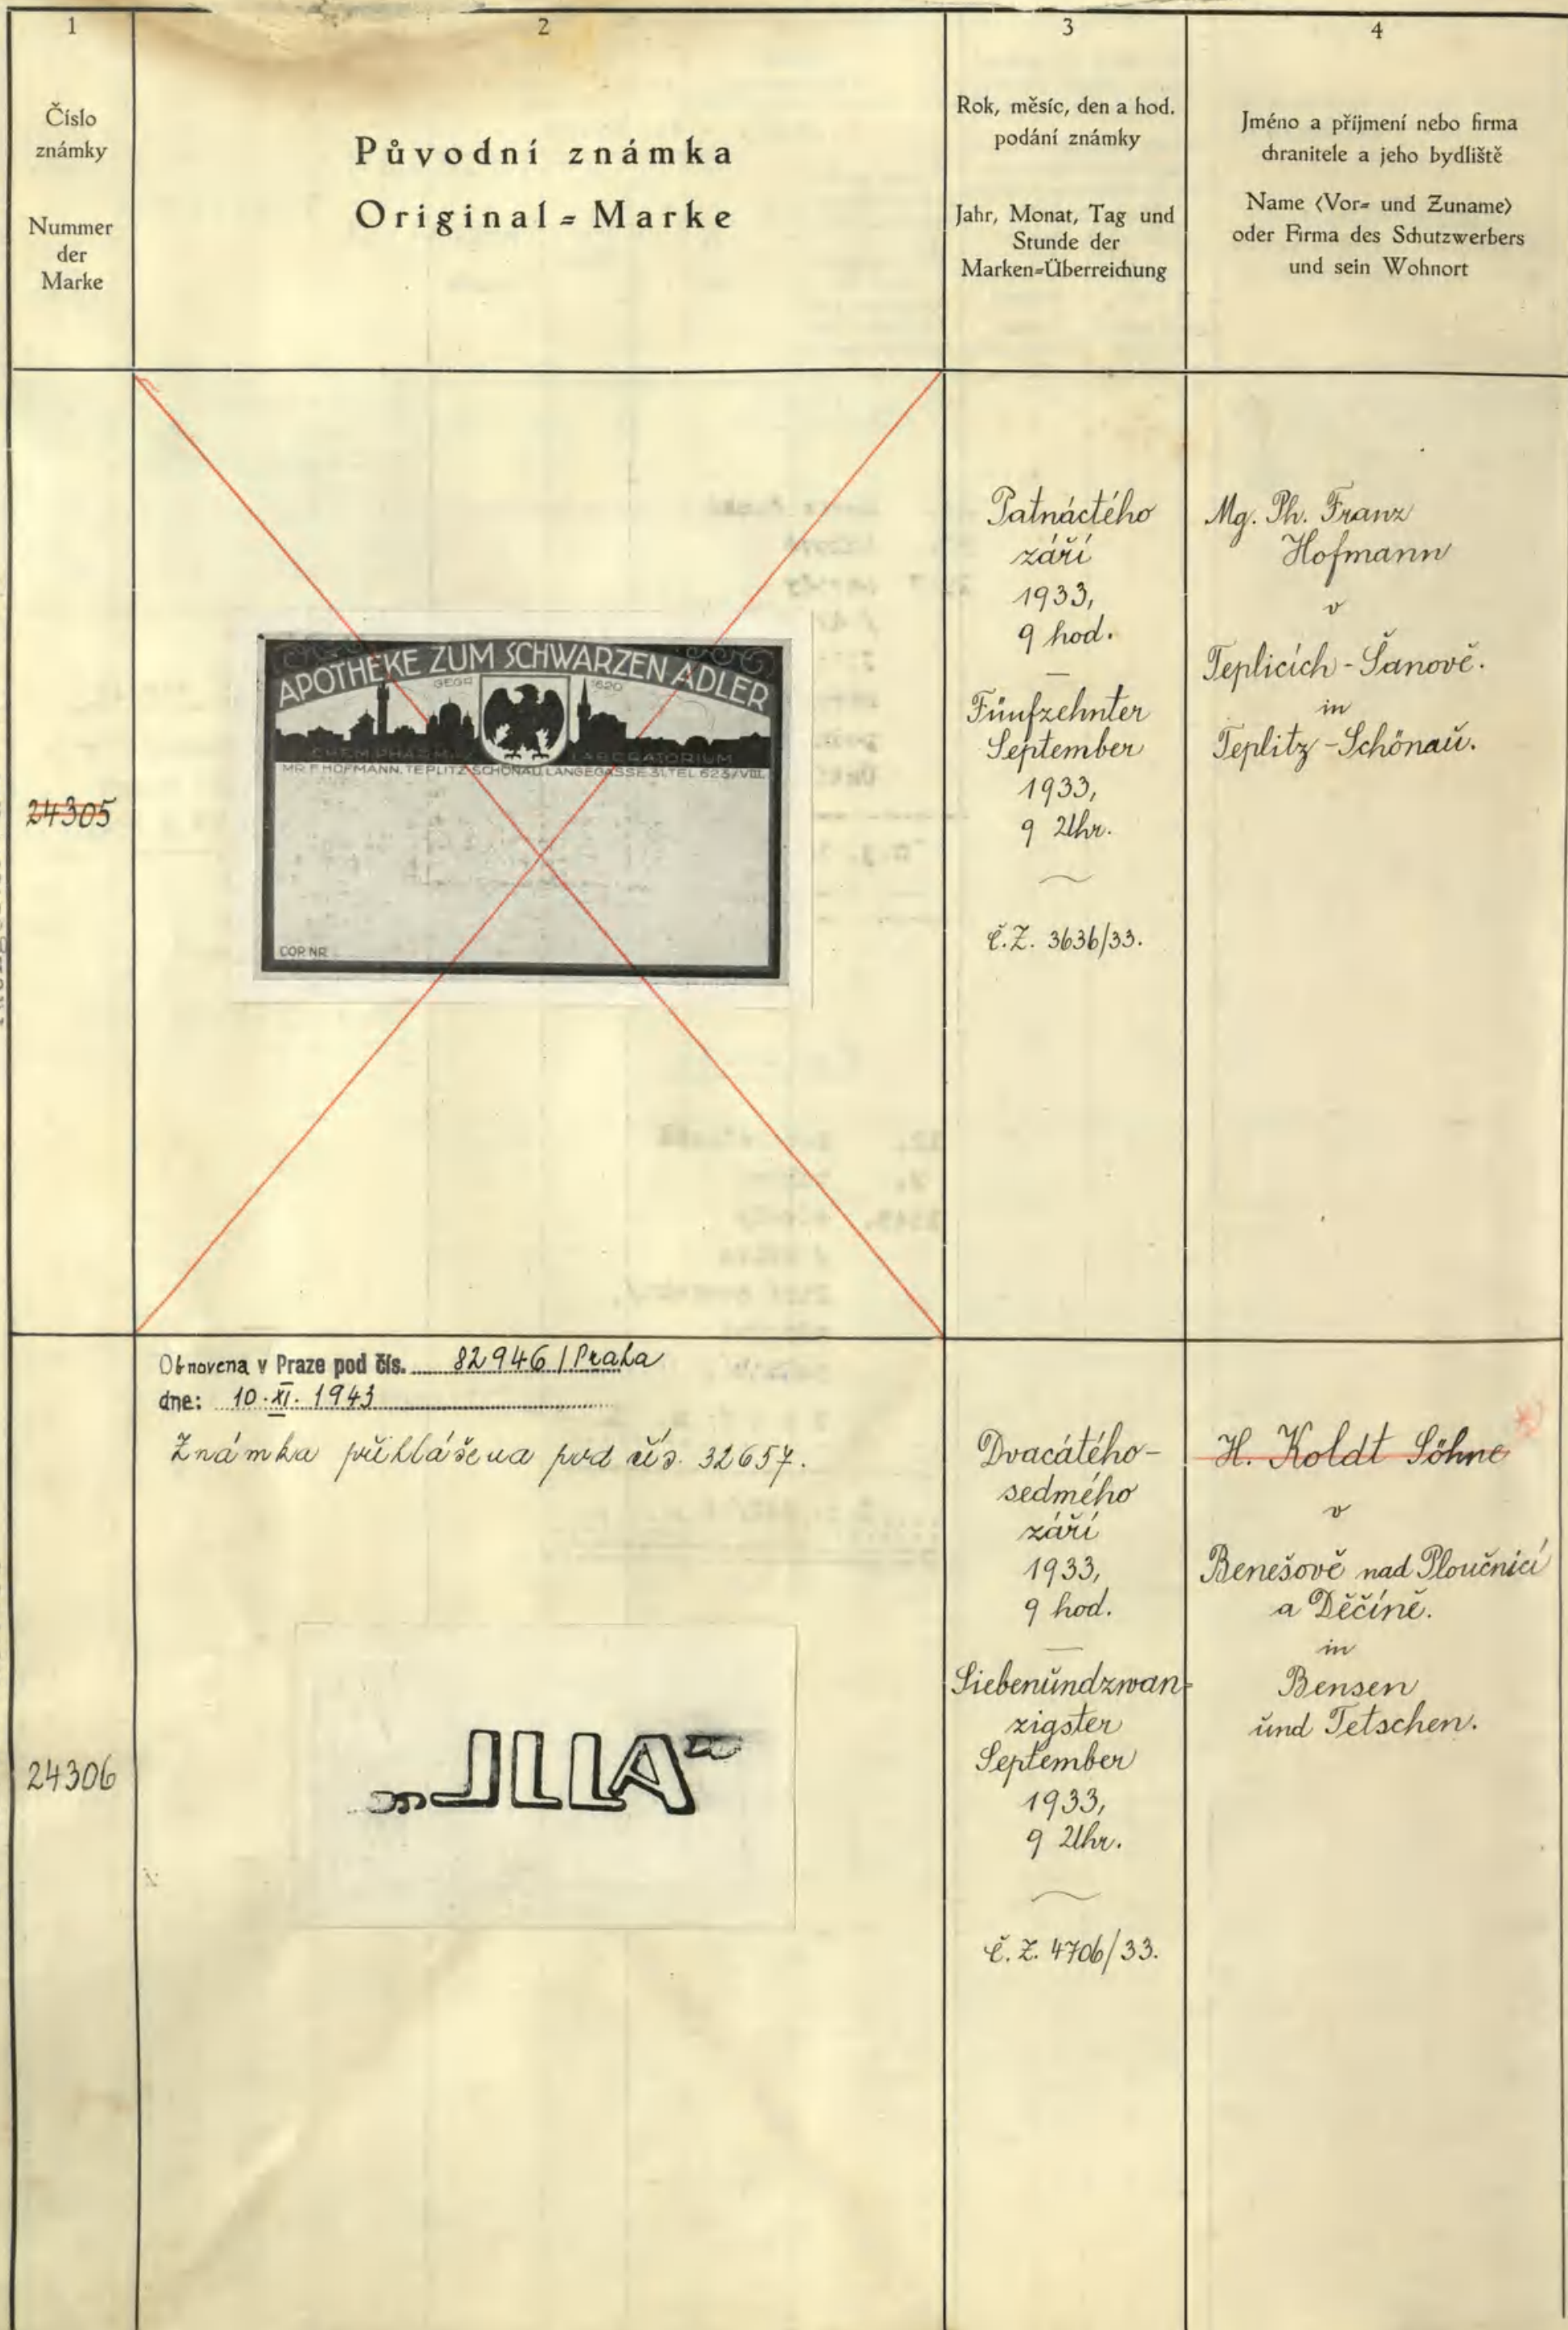 1
Číslo
známky
Nummer
der
Marke
2
Původní známka
Original=Marke
3
Rok, měsíc, den a hod.
podání známky
Jahr, Monat, Tag und
Stunde der
Marken=Überreichung
4
Jméno a příjmení nebo firma
chranitele a jeho bydliště
Name (Vor= und Zuname)
oder Firma des Schutzwerbers
und sein Wohnort
24305
APOTHEKE ZUM SCHWARZEN ADLER
GEGR. 1620
CHEM. PHARM. LABORATORIUM
MR. F. HOFMANN, TEPLITZ SCHÖNAU, LANGEGASSE 31, TEL. 623/VIII.
COP. NR.
Patnáctého
září
1933,
9 hod.
Fünfzehnter
September
1933,
9 Uhr.
č.Z. 3636/33.
Mg. Ph. Franz
Hofmann
v
Teplicích-Šanově.
in
Teplitz-Schönau.
24306
Obnovena v Praze pod čís. 82946/Praha
dne: 10.XI. 1943
Známka přihlášena pod čís. 32657.
„JLLA"
Dvacátého-
sedmého
září
1933,
9 hod.
Siebenundzwan-
zigster
September
1933,
9 Uhr.
č.Z. 4706/33.
H. Koldt Söhne
v
Benešově nad Ploučnicí
a Děčíně.
in
Bensen
und Tetschen.